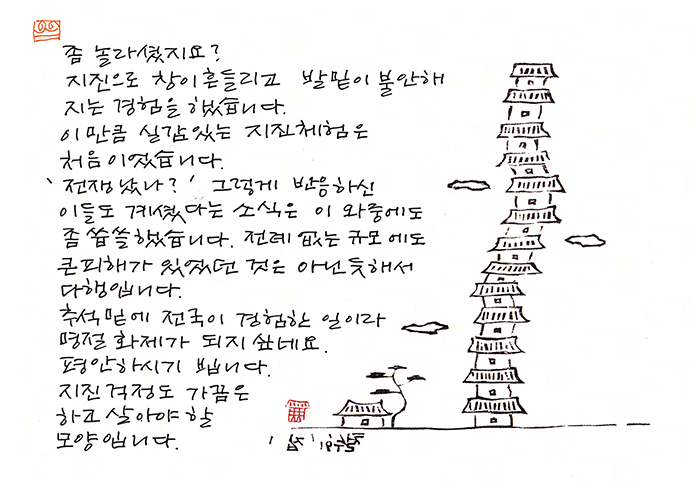 좀 놀라셨지요?
지진으로 창이 흔들리고 발밑이 불안해
지는 경험을 했습니다.
이만큼 실감있는 지진체험은
처음이었습니다.
'전쟁났나?' 그렇게 반응하신
이들도 계셨다는 소식은 이 와중에도
좀 씁쓸했습니다. 전례 없는 규모에도
큰피해가 있었던 것은 아닌듯해서
다행입니다.
추석밑에 전국이 경험한 일이라
명절 화제가 되지 싶네요.
평안하시기 빕니다.
지진걱정도 가끔은
하고 살아야 할
모양입니다.